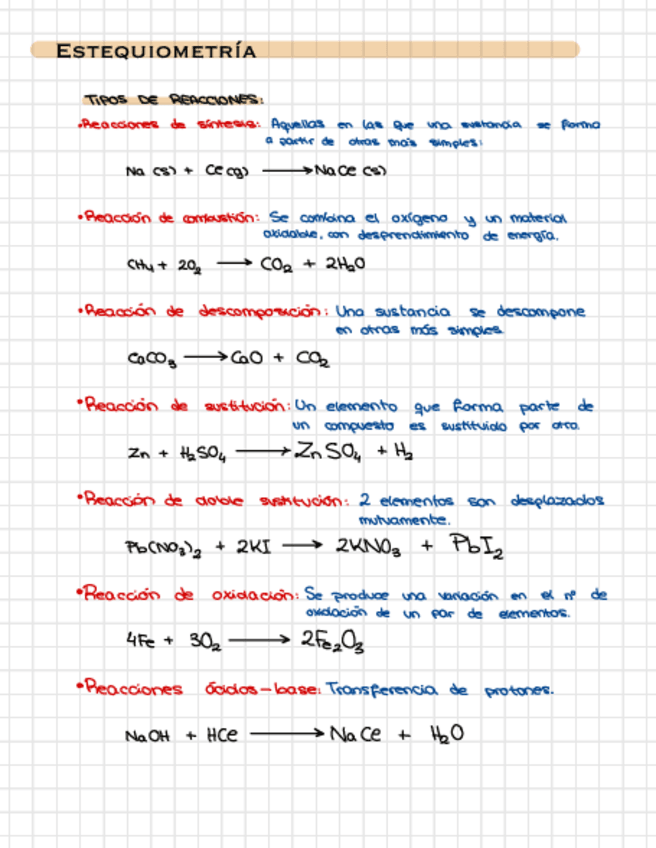 ESTEQUIOMETRÍA
TIPOS DE REACCIONES:
•Reacciones de síntesis: Aquellas en las que una sustancia se forma
a partir de otras más simples:
Na (s) + Cl(g) ⟶ NaCl (s)
•Reacción de combustión: Se combina el oxígeno y un material
oxidable, con desprendimiento de energía.
CH₄ + 2O₂ ⟶ CO₂ + 2H₂O
•Reacción de descomposición: Una sustancia se descompone
en otras más simples
CaCO₃ ⟶ CaO + CO₂
•Reacción de sustitución: Un elemento que forma parte de
un compuesto es sustituido por otro.
Zn + H₂SO₄ ⟶ ZnSO₄ + H₂
•Reacción de doble sustitución: 2 elementos son desplazados
mutuamente.
Pb(NO₃)₂ + 2KI ⟶ 2KNO₃ + PbI₂
•Reacción de oxidación: Se produce una variación en el nº de
oxidación de un par de elementos.
4Fe + 3O₂ ⟶ 2Fe₂O₃
•Reacciones ácidos-base: Transferencia de protones.
NaOH + HCl ⟶ NaCl + H₂O